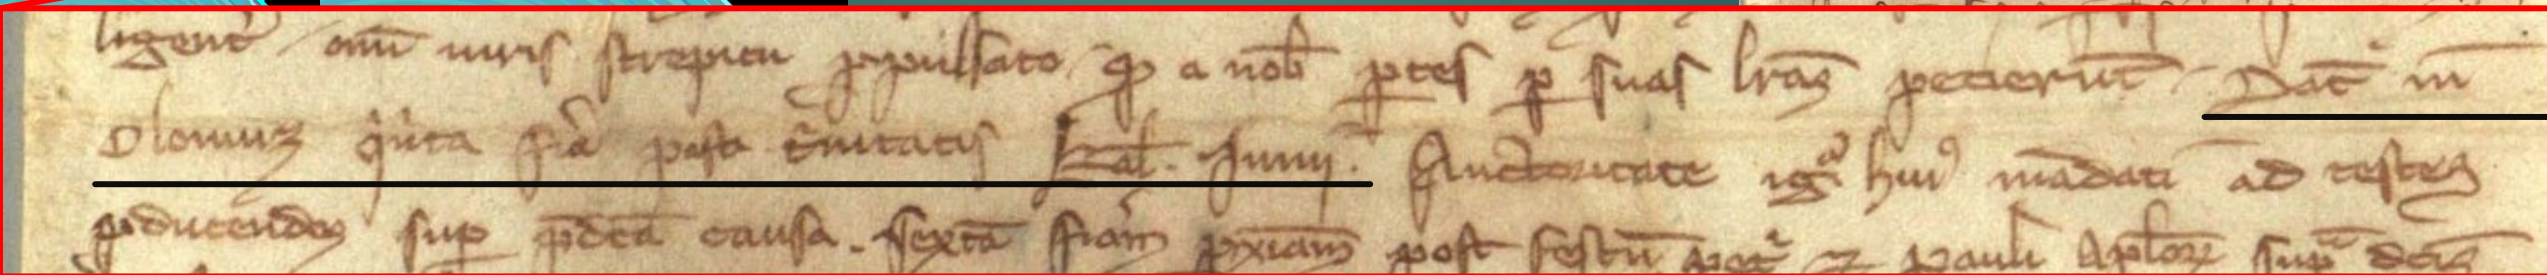 ligent᷑ . om̅ iuris strepitu ꝓpulsato . qͦ a nob̅ ꝑtes ꝑ suas lr̅as petieru̅t . Dat̅ in
Olomuz q̇nta fi̅a post ṫnitatis kal̅ . Iunii . Auctoritate igͣ hui⁹ ma̅dati ad testes
ꝓducendos suꝑ p̅dc̅a causa . sexta̅ fia̅m ꝓxia̅m post festu̅ pet͛ ⁊ pauli Apl̅oꝝ